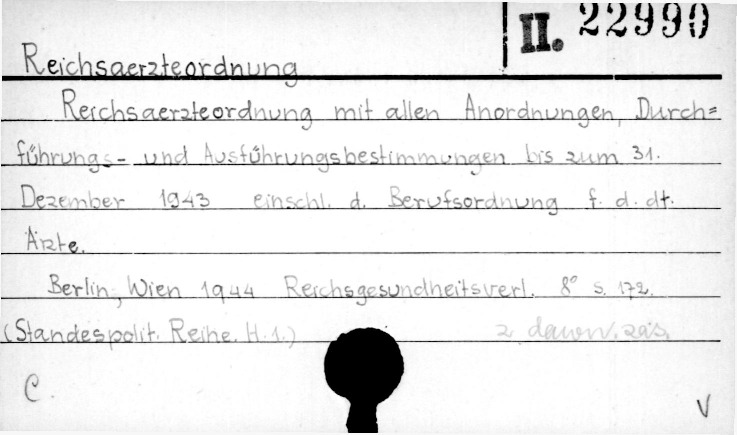 II. 22990
Reichsaerzteordnung
Reichsaerzteordnung mit allen Anordnungen, Durch=
führungs- und Ausführungsbestimmungen bis zum 31.
Dezember 1943 einschl. d. Berufsordnung f. d. dt.
Ärzte.
Berlin, Wien 1944 Reichsgesundheitsverl. 8° S. 172.
(Standespolit. Reihe. H. 1.) z dawn. zas.
C.
V